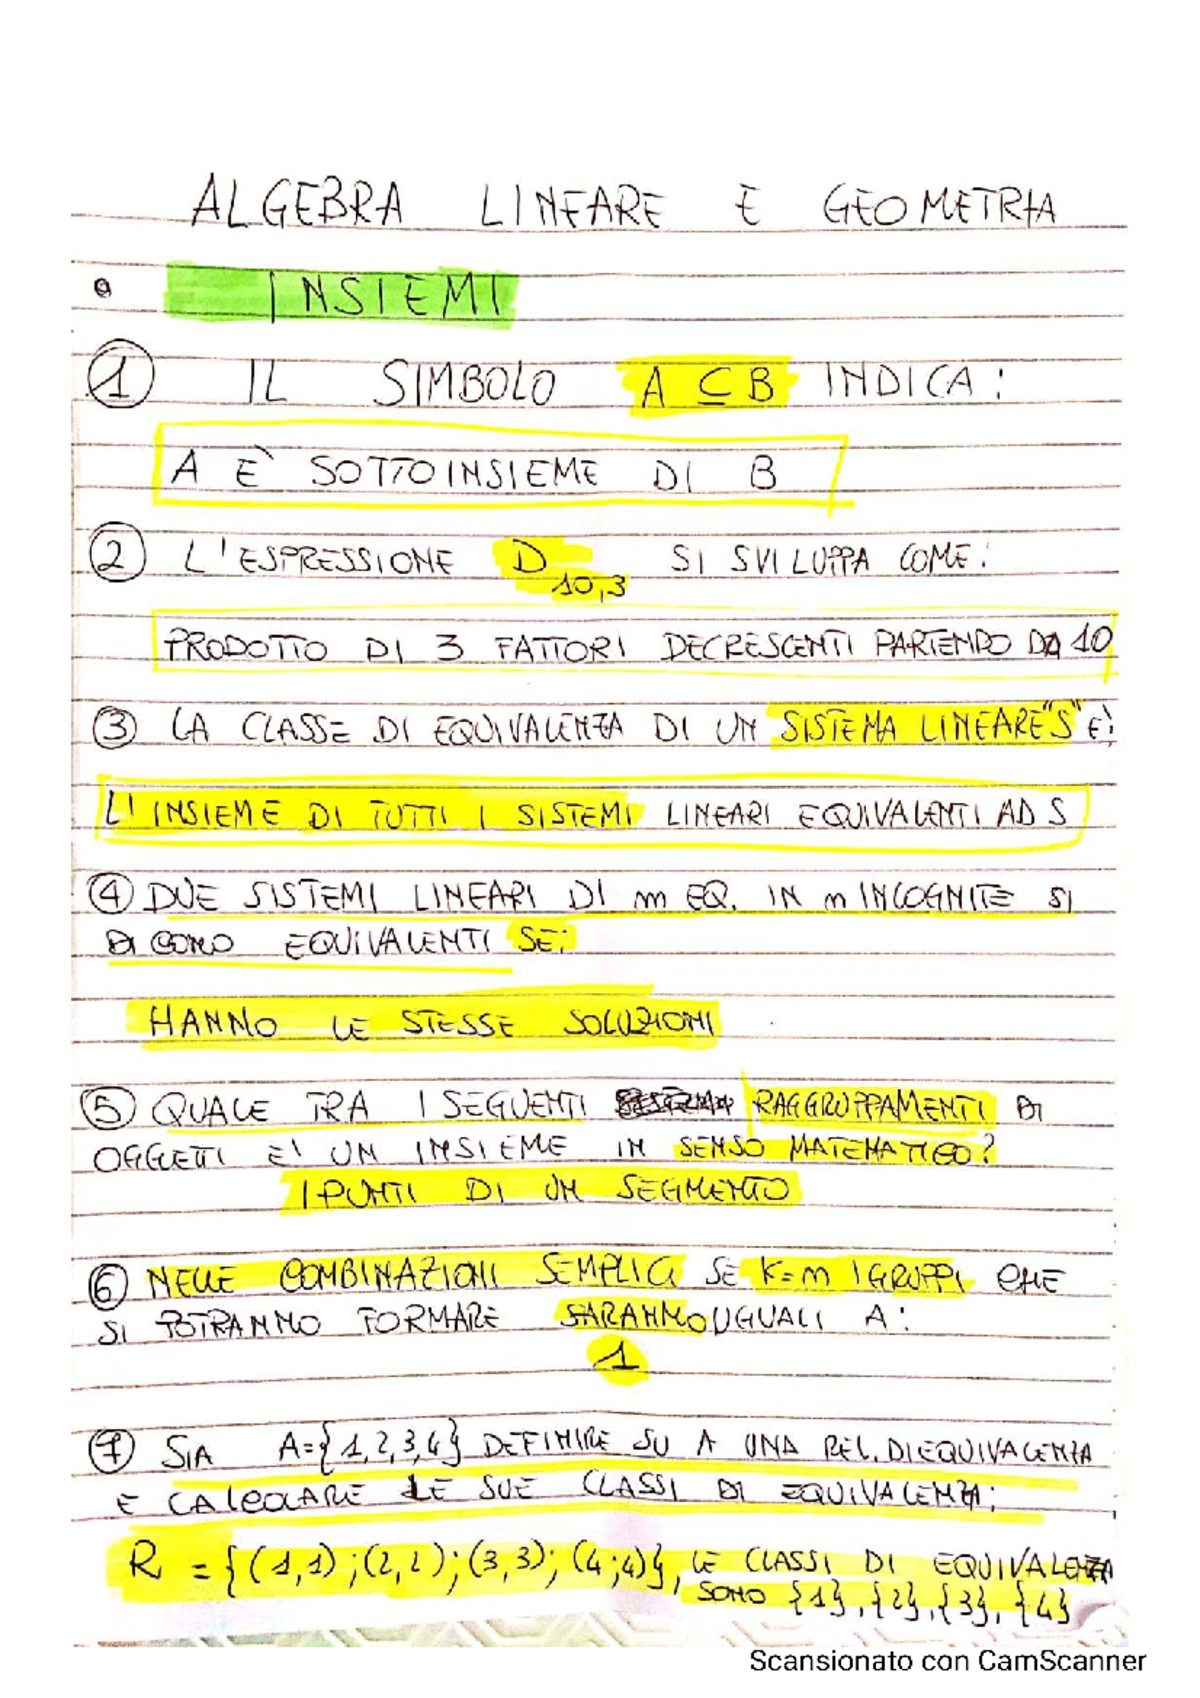 ALGEBRA LINEARE E GEOMETRIA
INSIEMI
1 IL SIMBOLO A ⊆ B INDICA:
A È SOTTOINSIEME DI B
2 L'ESPRESSIONE D10,3 SI SVILUPPA COME:
PRODOTTO DI 3 FATTORI DECRESCENTI PARTENDO DA 10
3 LA CLASSE DI EQUIVALENZA DI UN SISTEMA LINEARE "S" E':
L'INSIEME DI TUTTI I SISTEMI LINEARI EQUIVALENTI AD S
4 DUE SISTEMI LINEARI DI m EQ. IN n INCOGNITE SI
DICONO EQUIVALENTI SE:
HANNO LE STESSE SOLUZIONI
5 QUALE TRA I SEGUENTI RAGGRUPPAMENTI DI
OGGETTI E' UN INSIEME IN SENSO MATEMATICO?
I PUNTI DI UN SEGMENTO
6 NELLE COMBINAZIONI SEMPLICI SE K=n I GRUPPI CHE
SI POTRANNO FORMARE SARANNO UGUALI A:
1
7 SIA A={1,2,3,4} DEFINIRE SU A UNA REL. DI EQUIVALENZA
E CALCOLARE LE SUE CLASSI DI EQUIVALENZA:
R = {(1,1);(2,2);(3,3);(4;4)}, LE CLASSI DI EQUIVALENZA
SONO {1},{2},{3},{4}
Scansionato con CamScanner